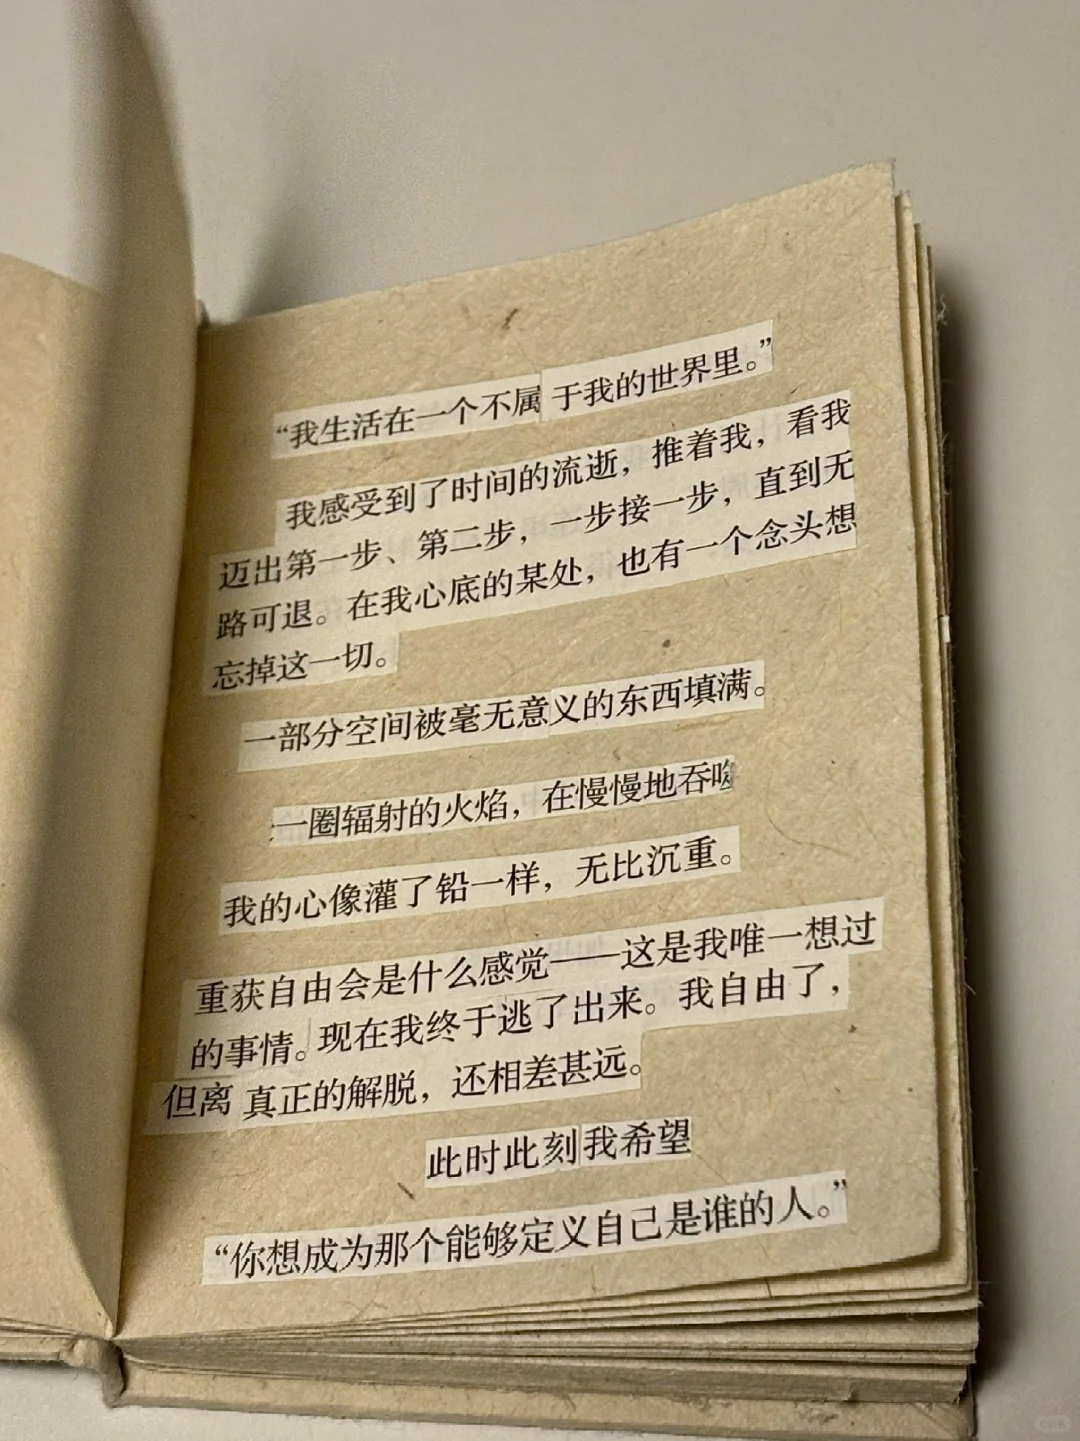 “我生活在一个不属于我的世界里。”
我感受到了时间的流逝，推着我，看我
迈出第一步、第二步，一步接一步，直到无
路可退。在我心底的某处，也有一个念头想
忘掉这一切。
一部分空间被毫无意义的东西填满。
一圈辐射的火焰，在慢慢地吞噬
我的心像灌了铅一样，无比沉重。
重获自由会是什么感觉——这是我唯一想过
的事情。现在我终于逃了出来。我自由了，
但离真正的解脱，还相差甚远。
此时此刻我希望
“你想成为那个能够定义自己是谁的人。”